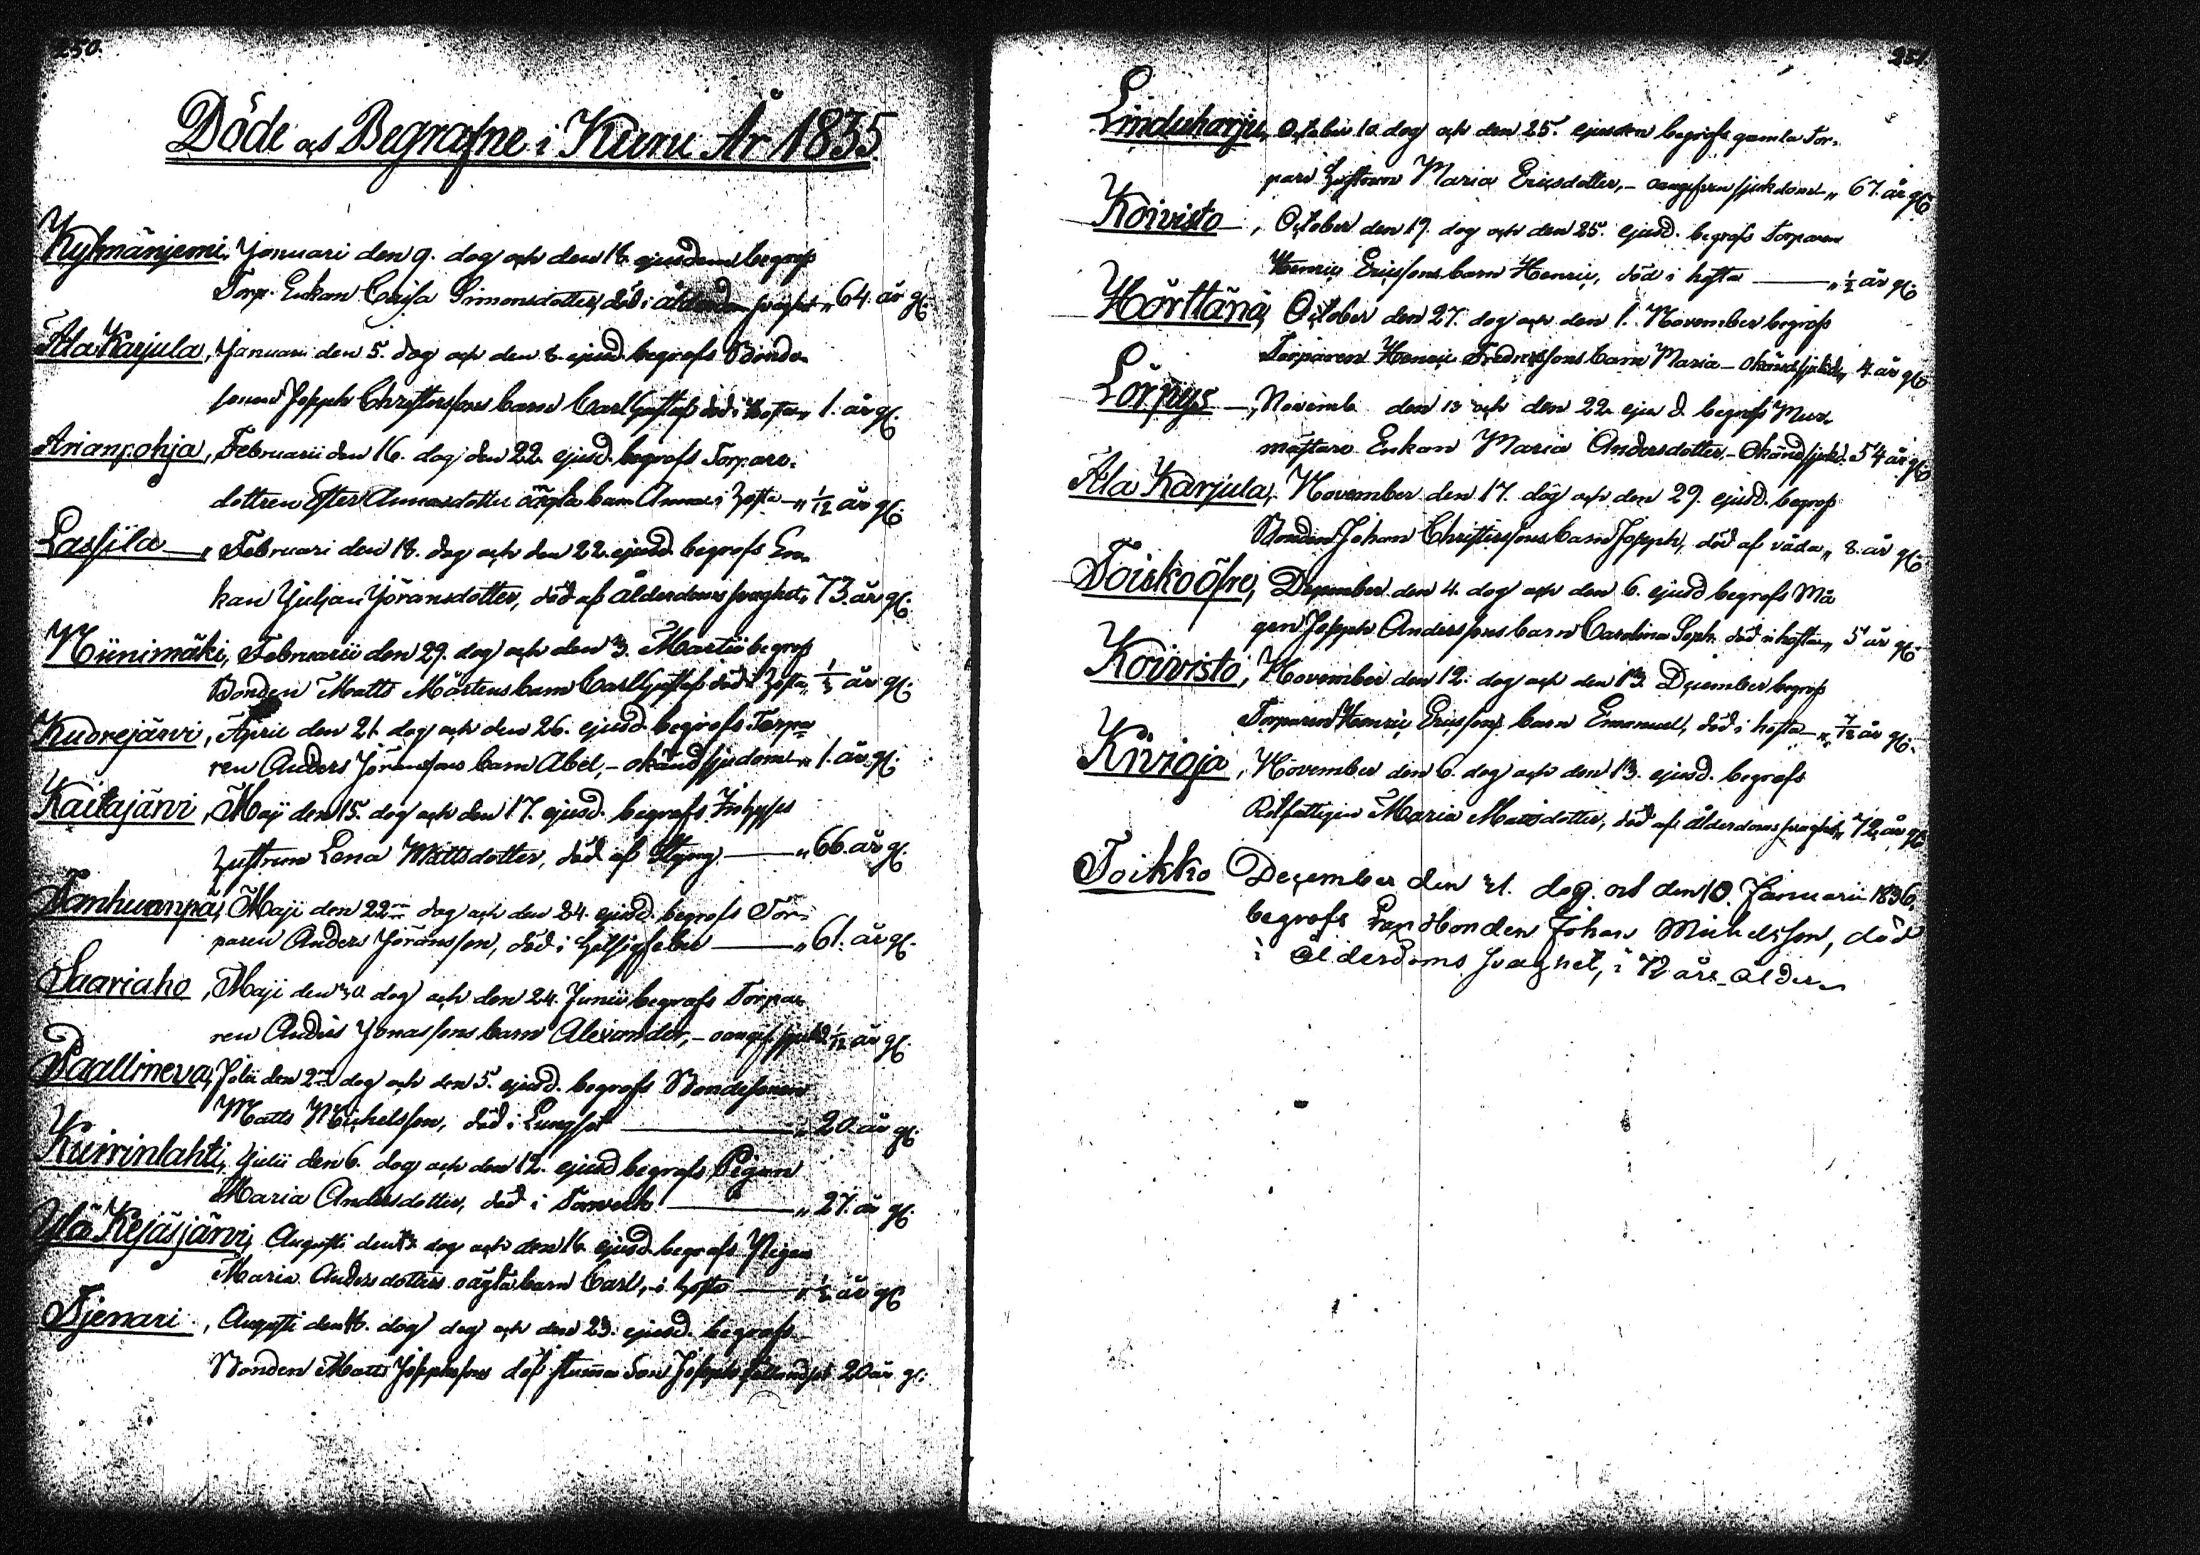 250.
Döde och Begrafne i Kuru År 1835.
Kyhmänjemi, Januari den 9. dag och den 18. ejusdem begrofs
Torp. Enkan Cajsa Simonsdotter, död i ålderdom svaghet " 64. år gl.
Ala Karjula, Januari den 5. dag och den 8. ejusd. begrofs Bonde
sonens Joseph Christerssons barn Carl Gustaf död i hosta " 1. år gl.
Arianpohja, Februarii den 16. dag den 22. ejusd. begrofs Torpare-
dottren Ester Annasdotter oägta barn Anna i hosta — " 1/12 år gl.
Lassila —, Februari den 18. dag och den 22. ejusd. begrofs En-
kan Juljan Jöransdotter, död af ålderdoms svaghet " 73. år gl.
Niinimäki, Februarii den 29. dag och den 3. Martii begrofs
Bonden Matts Mårtens barn Carl Gustaf död i hosta " 1/2 år gl.
Kudrejärvi, April den 21. dag och den 26. ejusd. begrofs Torpa-
ren Anders Jöranssons barn Abel, – okänd sjucdom — " 1. år gl.
Kaitajärvi, Maji den 15. dag och den 17. ejusd. begrofs
hustrun Lena Mattsdotter, död af Styng — " 66. år gl.
Maji den 22 dag och den 24. ejusd. begrofs Tor-
paren Anders Jöransson, död i — " 61. år gl.
Saariaho, Maji den 30. dag och den 24. Junii begrofs Torpa-
ren Anders Jonassons barn Alexander, – oangif. sjukd. 1/12 år gl.
Paallineva, Julii den 2 dag och den 5. ejusd. begrofs Bondesonen
Matts Michelsson, död i Lungsot — " 20. år gl.
Kuirinlahti, Julii den 6. dag och den 12. ejusd begrofs Pigan
Maria Andersdotter, död i — " 27. år gl.
Ylä Kejäsjärvi, Augusti den 13. dag och den 16. ejusd. begrofs Pigan
Maria Andersdotters oägta barn Carl, i hosta — " 1/2 år gl.
Tjenari, Augusti den 16. dag dag och den 23. ejusd. begrofs
Bonden Matts Josephssons döfstumma Son Joseph 20 år gl.
251.
Linduharju, October 10. dag och den 25. ejusdem begrofs gamla Tor-
pare hustrun Maria Ericsdotter, – oangifven sjukdom " 67. år gl.
Koivisto —, October den 19. dag och den 25. ejusd. begrofs Torparen
Henric Ericssons barn Henric, död i hosta — " 1/2 år gl.
Hörttänä, October den 27. dag och den 1. November begrofs
Torparen Henric Fredricssons barn Maria – okänd sjukd. " 4. år gl.
Lörpys —, Novemb. den 13 och den 22. ejusd. begrofs Mur-
mästare Enkan Maria Andersdotter – Okänd sjukd. 54 år gl.
Ala Karjula, November den 17. dag och den 29. ejusd. begrofs
Bonden Johan Christerssons barn Joseph, död af våda " 8. år gl.
Toicko öfre, December den 4. dag och den 6. ejusd begrofs Må-
gen Joseph Anderssons barn Carolina Soph. död i hosta " 5 år gl.
Koivisto, November den 12. dag och den 13. December begrofs
Torparen Henric Ericssons barn Emanuel, död i hosta — " 7/12 år gl.
Kivioja, November den 6. dag och den 13. ejusd. begrofs
Rotfattigen Maria Mattsdotter, död af ålderdoms svaghet " 72. år gl.
Toikko December den 31. dag. och den 10. Januarii 1836.
begrofs Bonden Johan Michelsson, död
i ålderdoms svaghet, i 72 års ålder